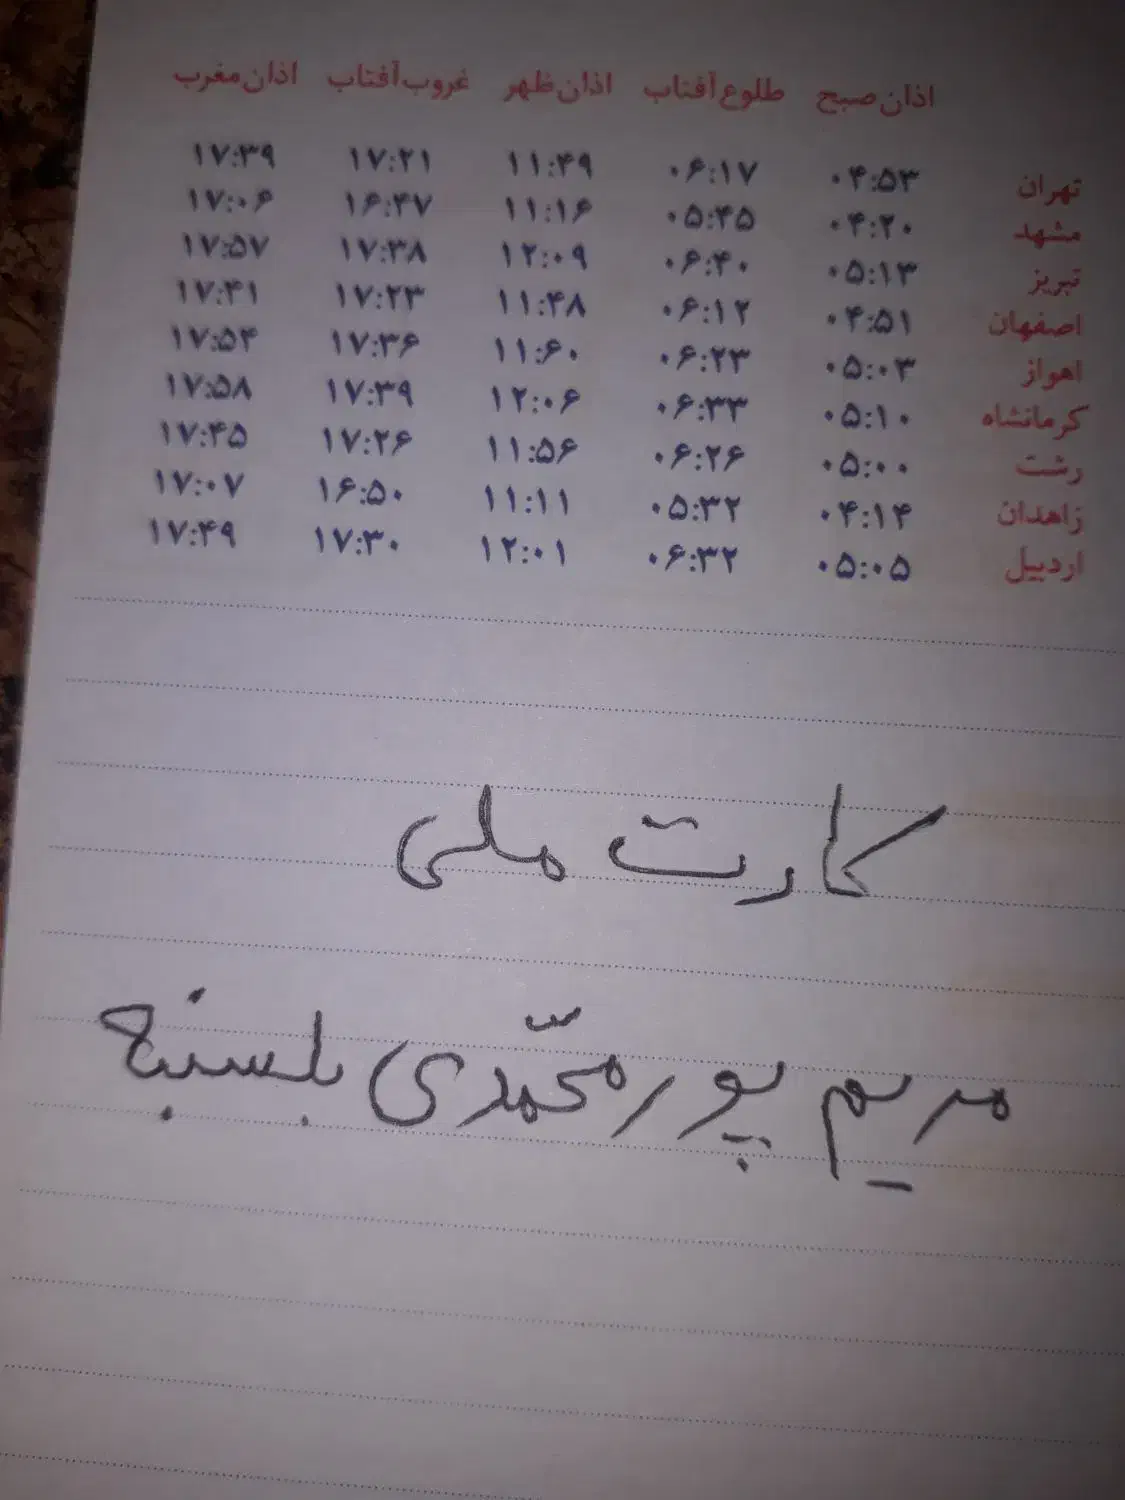 اذان صبح طلوع آفتاب اذان ظهر غروب آفتاب اذان مغرب
تهران ۰۴:۵۳ ۰۶:۱۷ ۱۱:۴۹ ۱۷:۲۱ ۱۷:۳۹
مشهد ۰۴:۲۰ ۰۵:۴۵ ۱۱:۱۶ ۱۶:۴۷ ۱۷:۰۶
تبریز ۰۵:۱۳ ۰۶:۴۰ ۱۲:۰۹ ۱۷:۳۸ ۱۷:۵۷
اصفهان ۰۴:۵۱ ۰۶:۱۲ ۱۱:۴۸ ۱۷:۲۳ ۱۷:۴۱
اهواز ۰۵:۰۳ ۰۶:۲۳ ۱۱:۶۰ ۱۷:۳۶ ۱۷:۵۴
کرمانشاه ۰۵:۱۰ ۰۶:۳۳ ۱۲:۰۶ ۱۷:۳۹ ۱۷:۵۸
رشت ۰۵:۰۰ ۰۶:۲۶ ۱۱:۵۶ ۱۷:۲۶ ۱۷:۴۵
زاهدان ۰۴:۱۴ ۰۵:۳۲ ۱۱:۱۱ ۱۶:۵۰ ۱۷:۰۷
اردبیل ۰۵:۰۵ ۰۶:۳۲ ۱۲:۰۱ ۱۷:۳۰ ۱۷:۴۹
کارت ملی
مریم پور محمّدی